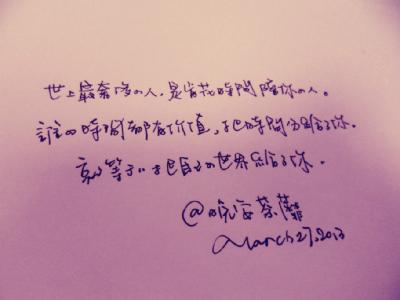 世上最奢侈的人，是肯花時間陪你的人。
誰的時間都有价值，把時間分给了你，
就等于把自己的世界给了你。
@晚安茶蘼
March 27, 2013